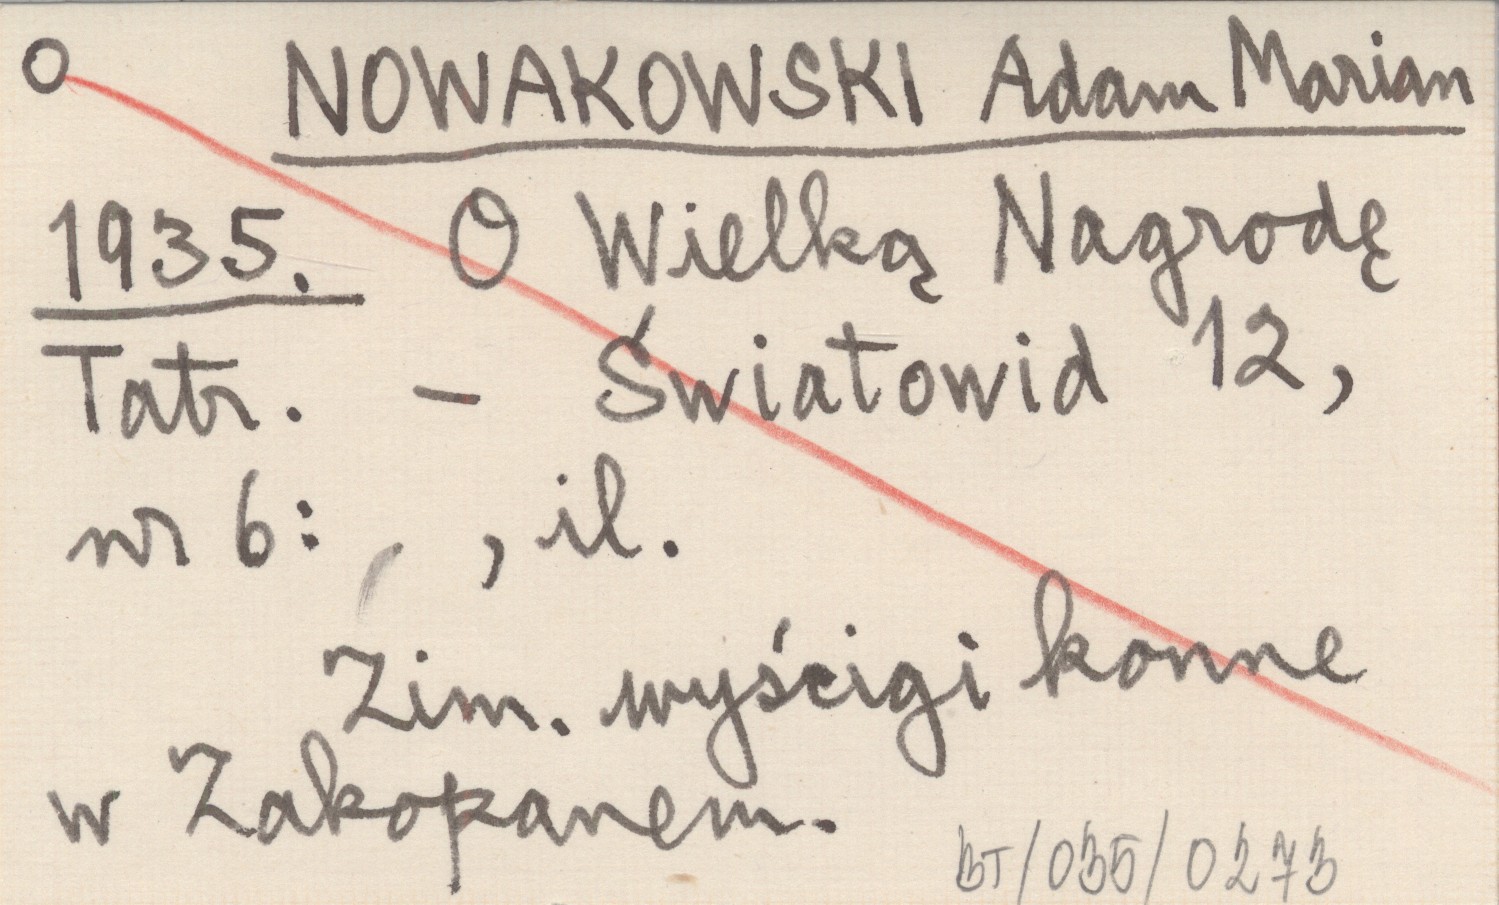 O NOWAKOWSKI Adam Marian
1935. O Wielką Nagrodę
Tatr. – Światowid 12,
nr 6: , il.
Zim. wyścigi konne
w Zakopanem.
BT/035/0273